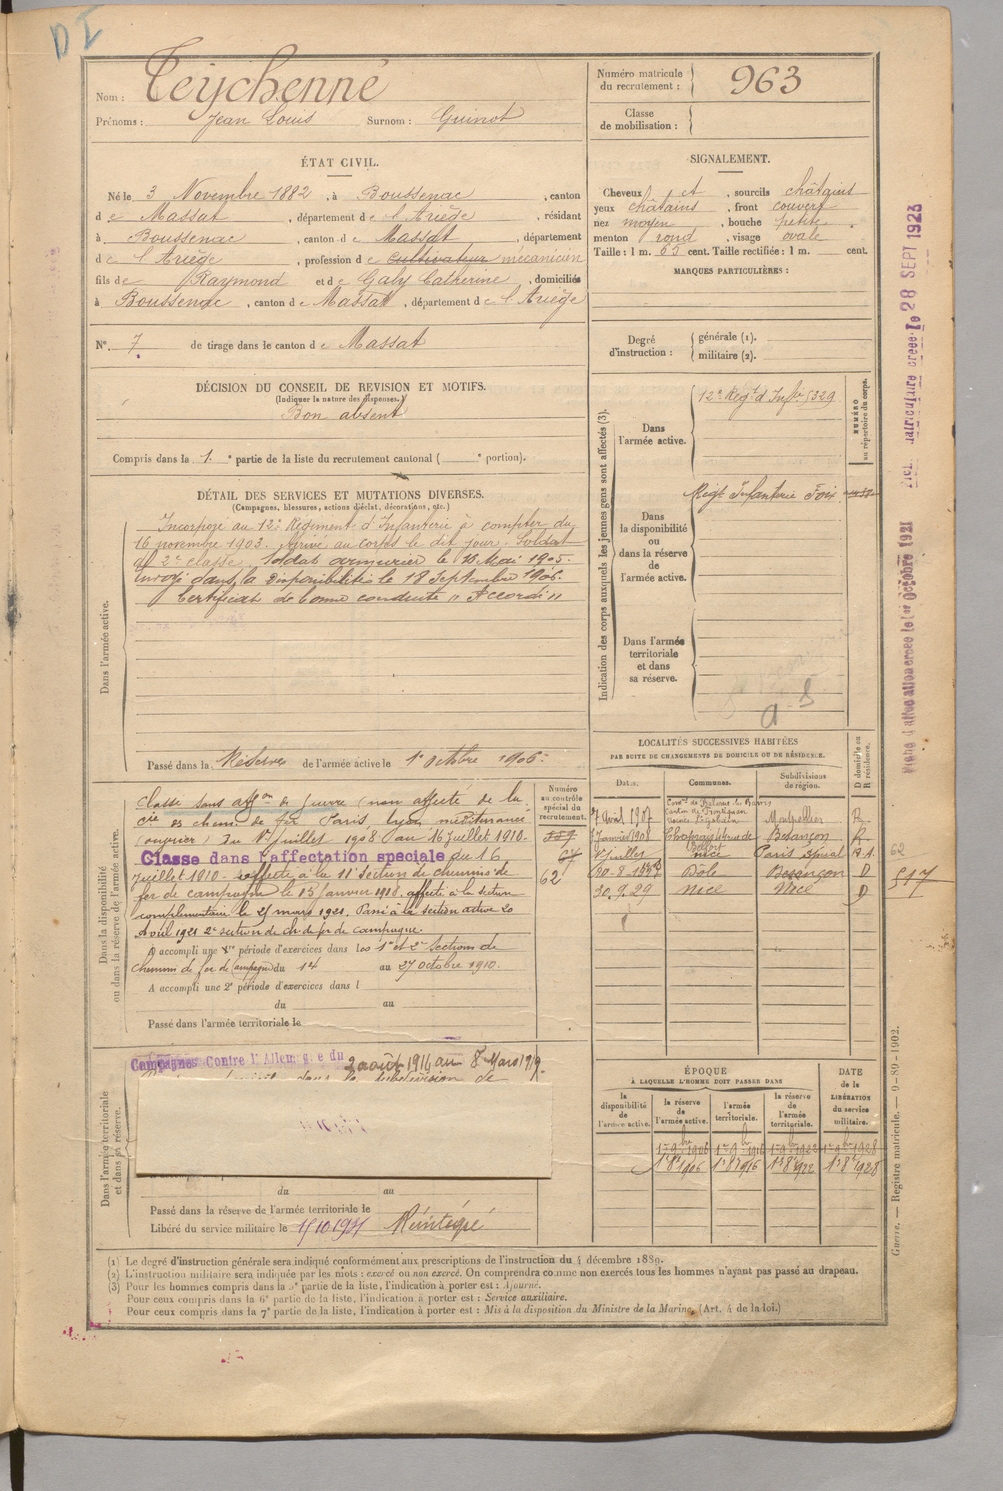 D I
Nom : Teychenné
Prénoms : Jean Louis Surnom : Guinot
Numéro matricule du recrutement : 963
Classe de mobilisation :
ÉTAT CIVIL.
Né le 3 Novembre 1882, à Boussenac, canton
de Massat, département de l'Ariège, résidant
à Boussenac, canton de Massat, département
de l'Ariège, profession de cultivateur mécanicien
fils de Raymond et de Galy Catherine, domiciliés
à Boussenac, canton de Massat, département de l'Ariège
N° 7 de tirage dans le canton de Massat
SIGNALEMENT.
Cheveux et, sourcils châtains
yeux châtains, front couvert
nez moyen, bouche petite
menton rond, visage ovale
Taille : 1 m. 65 cent. Taille rectifiée : 1 m. cent.
MARQUES PARTICULIÈRES :
Degré d'instruction : générale (1).
militaire (2).
DÉCISION DU CONSEIL DE REVISION ET MOTIFS.
(Indiquer la nature des dispenses.)
Bon absent
Compris dans la 1e partie de la liste du recrutement cantonal ( e portion).
DÉTAIL DES SERVICES ET MUTATIONS DIVERSES.
(Campagnes, blessures, actions d'éclat, décorations, etc.)
Dans l'armée active.
Incorporé au 12e Régiment d'Infanterie à compter du
16 novembre 1903. Arrivé au corps le dit jour. Soldat
de 2e classe. Soldat armurier le Mai 1905.
Envoyé dans la disponibilité le 18 Septembre 1906.
Certificat de bonne conduite "Accordé"
Passé dans la Réserve de l'armée active le 1er octobre 1906.
Indication des corps auxquels les jeunes gens sont affectés (3).
NUMÉRO au répertoire du corps.
Dans l'armée active.
12e Régt d'Infie 5329
Dans la disponibilité ou dans la réserve de l'armée active.
Régt Infanterie Foix
Dans l'armée territoriale et dans sa réserve.
LOCALITÉS SUCCESSIVES HABITÉES
PAR SUITE DE CHANGEMENTS DE DOMICILE OU DE RÉSIDENCE.
Dates. Communes. Subdivisions de région. D domicile ou R résidence.
7 Avril 1907 Montpellier R
Janvier 1908 Besançon R
Juillet Belfort
20-8- Dôle Besançon D
30.9.29 Nice Nice D
Dans la disponibilité ou dans la réserve de l'armée active.
Numéro au contrôle spécial du recrutement.
62
Classé sans affon de guerre (non affecté) de la
cie de chemin de fer Paris Lyon méditerranée
(ouvrier) Du 1er juillet 1908 au 16 Juillet 1910.
Classé dans l'affectation spéciale du 16
juillet 1910 - affecté à la 11e Section de chemins de
fer de campagne le 15 Janvier 1918 affecté à la section
complémentaire le 25 mars 1921. Passé à la section active 20
Avril 1921 2e section de ch de fer de campagne.
A accompli une 1re période d'exercices dans les 1e et 2e Sections de
chemins de fer de Campagne du 14 au 27 octobre 1910.
A accompli une 2e période d'exercices dans l
du au
Passé dans l'armée territoriale le
Dans l'armée territoriale et dans sa réserve.
Campagnes Contre l'Allemagne du 2 août 1914 au 8 Mars 1919.
du au
Passé dans la réserve de l'armée territoriale le
Libéré du service militaire le 15/10 1931
ÉPOQUE
À LAQUELLE L'HOMME DOIT PASSER DANS
la disponibilité de l'armée active. la réserve de l'armée active. l'armée territoriale. la réserve de l'armée territoriale. DATE de la LIBÉRATION du service militaire.
1er 8bre 1906 1er 8 1916 1er 8 1922 1er 8 1928
62
517
28 SEPT 1923
Octobre 1921
Guerre. — Registre matricule. — 9-89-1902.
(1) Le degré d'instruction générale sera indiqué conformément aux prescriptions de l'instruction du 4 décembre 1889.
(2) L'instruction militaire sera indiquée par les mots : exercé ou non exercé. On comprendra comme non exercés tous les hommes n'ayant pas passé au drapeau.
(3) Pour les hommes compris dans la 5e partie de la liste, l'indication à porter est : Ajourné.
Pour ceux compris dans la 6e partie de la liste, l'indication à porter est : Service auxiliaire.
Pour ceux compris dans la 7e partie de la liste, l'indication à porter est : Mis à la disposition du Ministre de la Marine. (Art. 4 de la loi.)